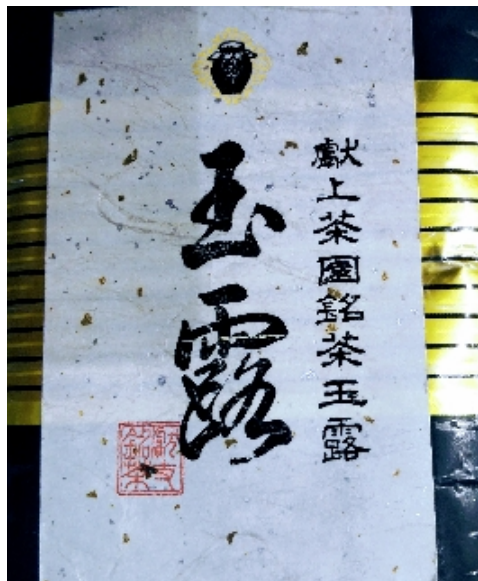 獻上茶園銘茶玉露
玉露